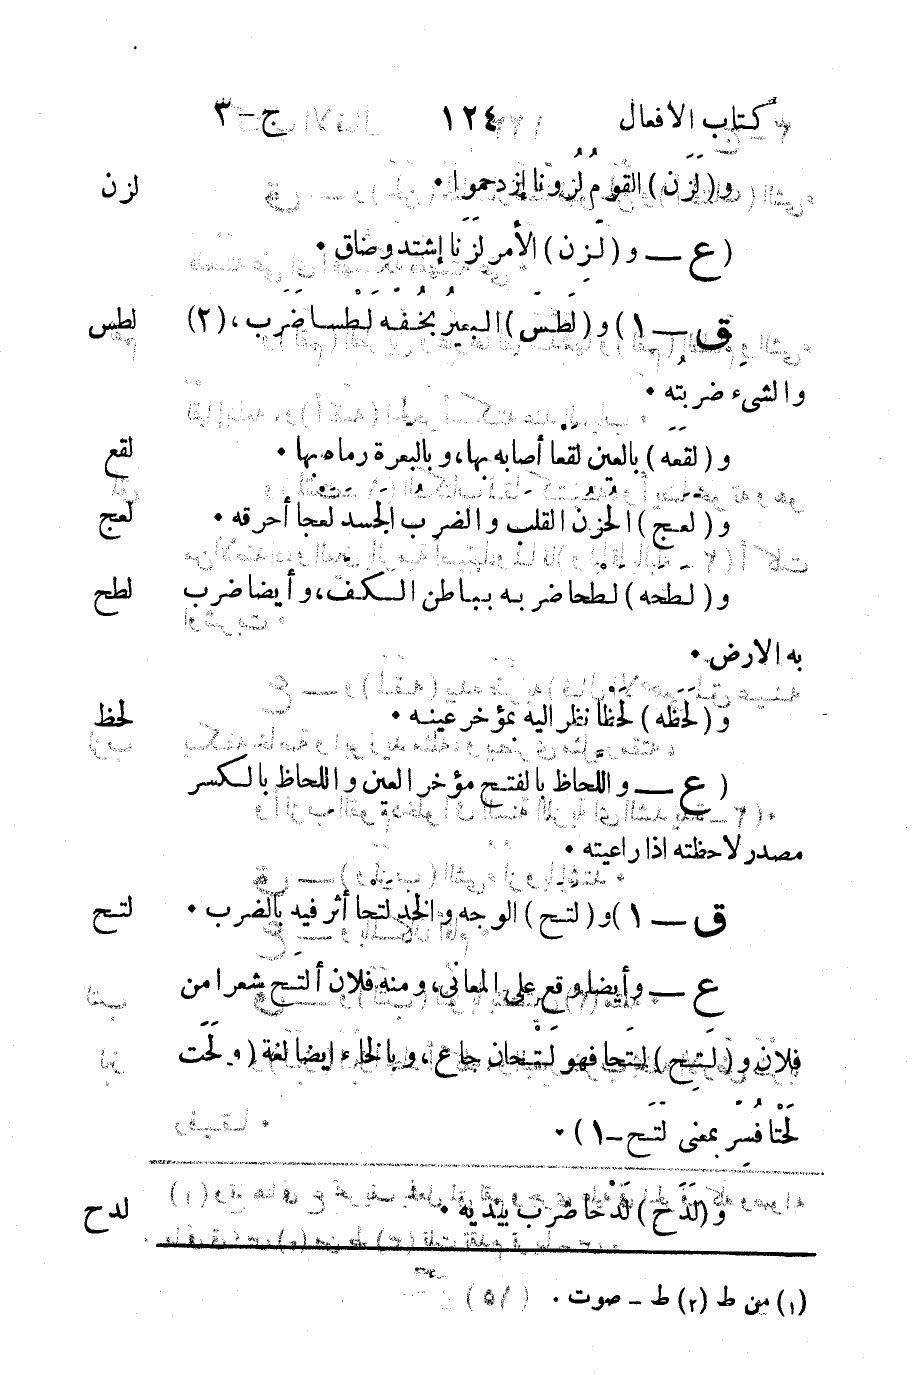 كتاب الافعال ١٢٤ ج-٣
و (لَزَن) القومُ لُزُونا إزدحموا • لزن
(ع — و (لَزِن) الأمر لَزَنا إشتد وضاق •
ق — ١) و (لَطَس) البعيرُ بخُفّه لَطْسا ضَرَب، (٢) لطس
والشىء ضربتُه •
و (لقَعَه) بالعين لقعا أصابه بها، و بالبعرة رماه بها • لقع
و (لعج) الحُزنُ القلب و الضربُ الجسد لعجا أحرقه • لعج
و (لطحه) لطْحا ضربه بباطن الكف، و أيضا ضرب لطح
به الارض •
و (لَحَظَه) لَحْظًا نظر اليه بمؤخر عينه • لحظ
(ع — و اللحاظ بالفتح مؤخر العين و اللحاظ بالكسر
مصدر لاحظته اذا راعيته •
ق — ١) و (لتح) الوجه و الخد لتحا أثر فيه بالضرب • لتح
ع — و أيضا وقع على المعاني، و منه فلان ألتح شعرا من
فلان و (لَتِح) لتَحا فهو لَتْحان جاع، و بالخاء ايضا لغة (و لَحَت
لَحْتا فُسِّر بمعنى لَتَح-١) •
و (لَدَح) لَدْحا ضرب بيديه • لدح
(١) من ط (٢) ط - صوت •
(١٥)